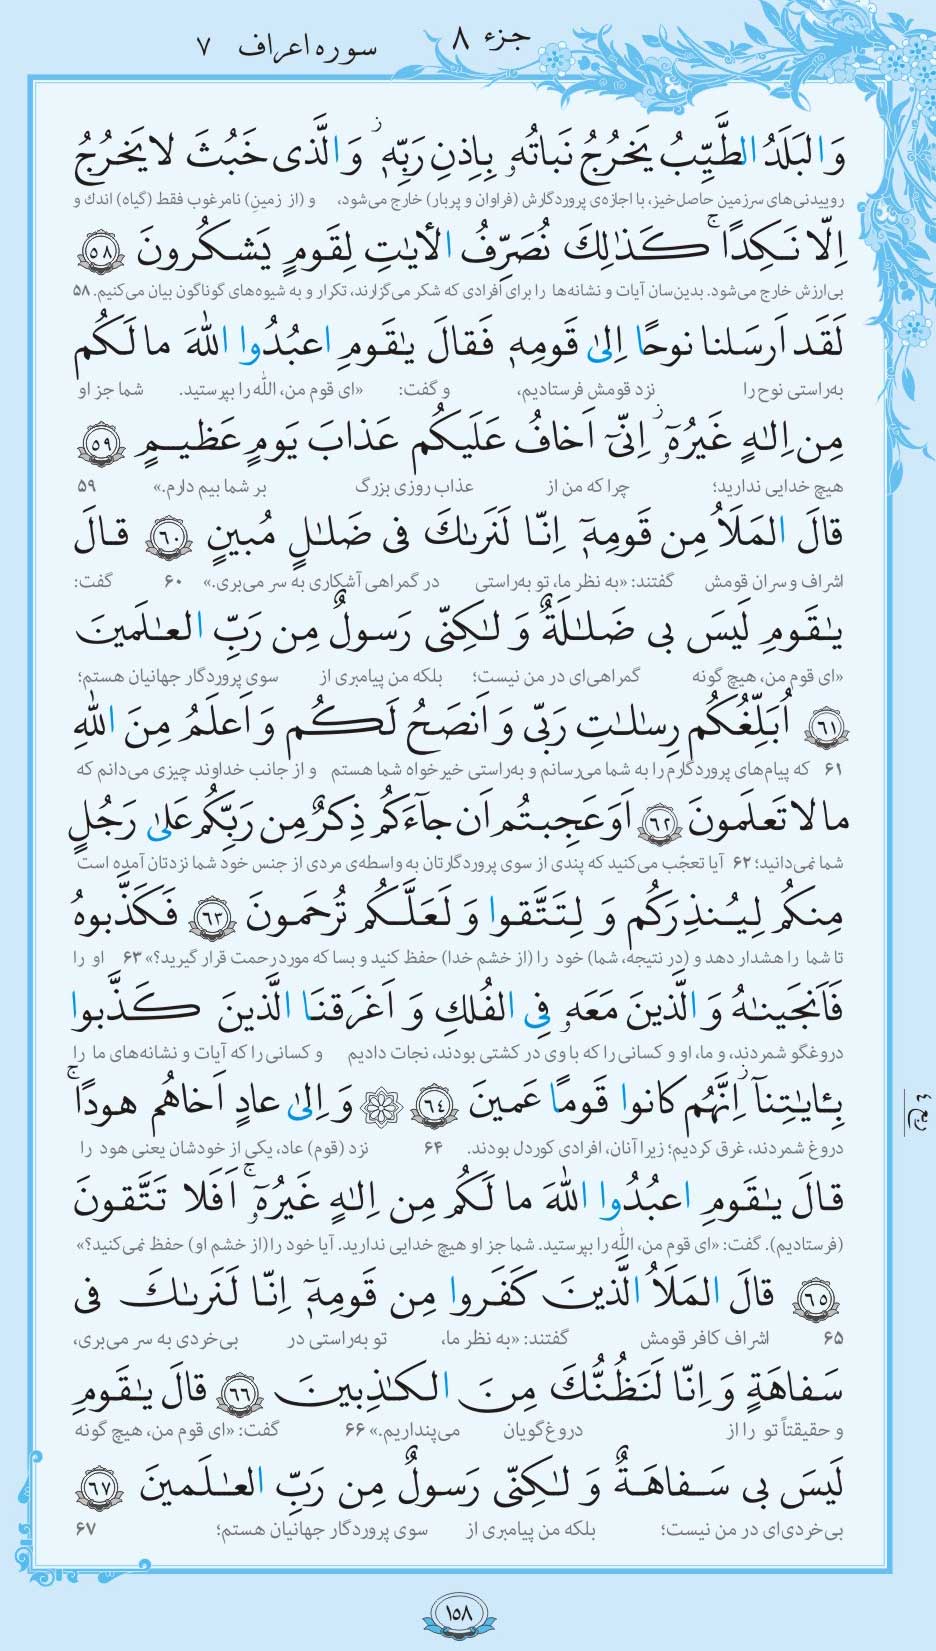 جزء ۸
سوره اعراف ۷
وَالبَلَدُ الطَّيِّبُ يَخرُجُ نَباتُهُ بِاِذنِ رَبِّه۪ ز وَالَّذى خَبُثَ لا يَخرُجُ
روییدنی‌های سرزمین حاصل‌خیز، با اجازه‌ی پروردگارش (فراوان و پربار) خارج می‌شود، و (از زمینِ) نامرغوب فقط (گیاه) اندك و
اِلّا نَكِدًا ج كَذٰلِكَ نُصَرِّفُ الأياٰتِ لِقَومٍ يَشكُرونَ ٥٨
بی‌ارزش خارج می‌شود. بدین‌سان آیات و نشانه‌ها را برای افرادی که شکر می‌گزارند، تکرار و به شیوه‌های گوناگون بیان می‌کنیم. ۵۸
لَقَد اَرسَلنا نوحًا اِلىٰ قَومِه۪ فَقالَ ياٰقَومِ اعبُدُوا اللّٰهَ ما لَكُم
به‌راستی نوح را نزد قومش فرستادیم، و گفت: «ای قوم من، اللّٰه را بپرستید. شما جز او
مِن اِلـٰهٍ غَيرُهٓ ز اِنّىٓ اَخافُ عَلَيكُم عَذابَ يَومٍ عَظيمٍ ٥٩
هیچ خدایی ندارید؛ چرا که من از عذاب روزی بزرگ بر شما بیم دارم.» ۵۹
قالَ المَلَأُ مِن قَومِه۪ٓ اِنّا لَنَرىٰكَ فى ضَلـٰلٍ مُبينٍ ٦٠ قالَ
اشراف و سران قومش گفتند: «به نظر ما، تو به‌راستی در گمراهی آشکاری به سر می‌بری.» ۶۰ گفت:
ياٰقَومِ لَيسَ بى ضَلـٰلَةٌ وَ لـٰكِنّى رَسولٌ مِن رَبِّ العـٰلَمينَ
«ای قوم من، هیچ گونه گمراهی‌ای در من نیست؛ بلکه من پیامبری از سوی پروردگار جهانیان هستم؛
٦١ اُبَلِّغُكُم رِسـٰلـٰتِ رَبّى وَ اَنصَحُ لَكُم وَ اَعلَمُ مِنَ اللّٰهِ
۶۱ که پیام‌های پروردگارم را به شما می‌رسانم و به‌راستی خیرخواه شما هستم و از جانب خداوند چیزی می‌دانم که
ما لا تَعلَمونَ ٦٢ اَوَعَجِبتُم اَن جآءَكُم ذِكرٌ مِن رَبِّكُم عَلىٰ رَجُلٍ
شما نمی‌دانید؛ ۶۲ آیا تعجّب می‌کنید که پندی از سوی پروردگارتان به واسطه‌ی مردی از جنس خود شما نزدتان آمده است
مِنكُم لِيُنذِرَكُم وَ لِتَتَّقوا وَ لَعَلَّكُم تُرحَمونَ ٦٣ فَكَذَّبوهُ
تا شما را هشدار دهد و (در نتیجه، شما) خود را (از خشم خدا) حفظ کنید و بسا که مورد رحمت قرار گیرید؟» ۶۳ او را
فَاَنجَينـٰهُ وَ الَّذينَ مَعَهُ فِى الفُلكِ وَ اَغرَقنَا الَّذينَ كَذَّبوا
دروغگو شمردند، و ما، او و کسانی را که با وی در کشتی بودند، نجات دادیم و کسانی را که آیات و نشانه‌های ما را
بِـٔاياٰتِنآ ز اِنَّهُم كانوا قَومًا عَمينَ ٦٤ وَ اِلىٰ عادٍ اَخاهُم هودًا ج
دروغ شمردند، غرق کردیم؛ زیرا آنان، افرادی کوردل بودند. ۶۴ نزد (قوم) عاد، یکی از خودشان یعنی هود را
ربع ٤
قالَ ياٰقَومِ اعبُدُوا اللّٰهَ ما لَكُم مِن اِلـٰهٍ غَيرُهٓ ج اَفَلا تَتَّقونَ
(فرستادیم). گفت: «ای قوم من، اللّٰه را بپرستید. شما جز او هیچ خدایی ندارید. آیا خود را (از خشم او) حفظ نمی‌کنید؟»
٦٥ قالَ المَلَأُ الَّذينَ كَفَروا مِن قَومِه۪ٓ اِنّا لَنَرىٰكَ فى
۶۵ اشراف کافر قومش گفتند: «به نظر ما، تو به‌راستی در بی‌خردی به سر می‌بری،
سَفاهَةٍ وَ اِنّا لَنَظُنُّكَ مِنَ الكـٰذِبينَ ٦٦ قالَ ياٰقَومِ
و حقیقتاً تو را از دروغ‌گویان می‌پنداریم.» ۶۶ گفت: «ای قوم من، هیچ گونه
لَيسَ بى سَفاهَةٌ وَ لـٰكِنّى رَسولٌ مِن رَبِّ العـٰلَمينَ ٦٧
بی‌خردی‌ای در من نیست؛ بلکه من پیامبری از سوی پروردگار جهانیان هستم؛ ۶۷
۱۵۸